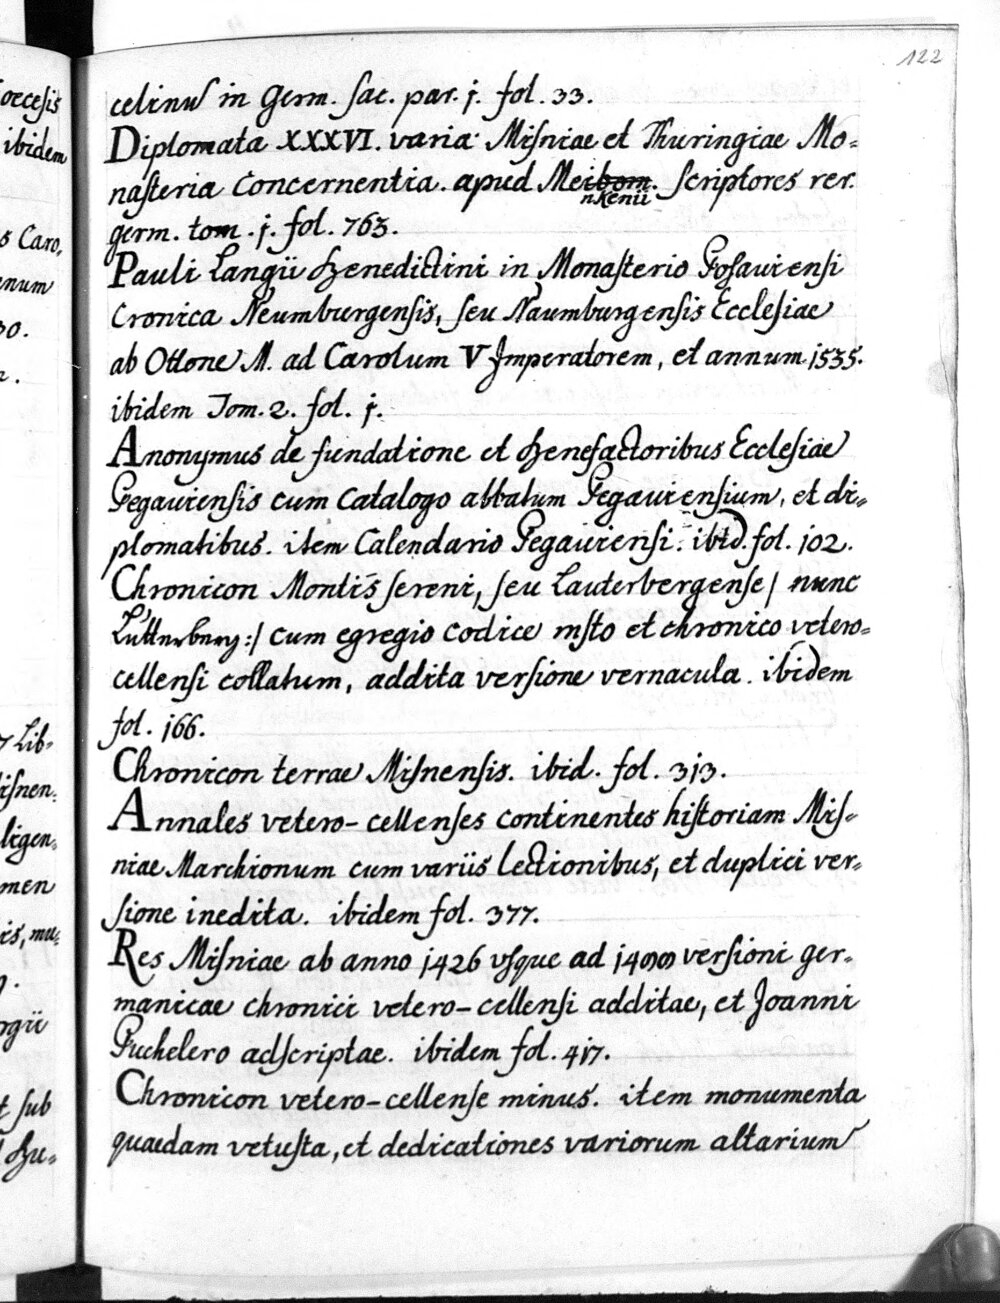 122
oecesis
ibidem
s Caro,
enum
30.
2.
7 Lib-
isnen.
ligen,
men
is, mu,
9.
orgii
t sub
celinus in Germ. Sac. par. 1. fol. 33.
Diplomata XXXVI. varia Misniae et Thuringiae Mo-
nasteria concernentia. apud Meibom. Scriptores rer.
nkenii
germ. tom. 1. fol. 763.
Pauli Langii Benedictini in Monasterio Bosaviensi
Cronica Neumburgensis, seu Naumburgensis Ecclesiae
ab Ottone M. ad Carolum V Imperatorem, et annum 1535.
ibidem Tom. 2. fol. 1.
Anonymus de fundatione et Benefactoribus Ecclesiae
Pegaviensis cum Catalogo abbatum Pegaviensium, et di-
plomatibus. item Calendario Pegaviensi. ibid. fol. 102.
Chronicon Montis Sereni, seu Lauterbergense / nunc
Lutterberg :/ cum egregio codice msto et chronico vetero-
cellensi collatum, addita versione vernacula. ibidem
fol. 166.
Chronicon terrae Misnensis. ibid. fol. 313.
Annales vetero-cellenses continentes historiam Mis-
niae Marchionum cum variis lectionibus, et duplici ver-
sione inedita. ibidem fol. 377.
Res Misniae ab anno 1426 usque ad versioni ger-
manicae chronici vetero-cellensi additae, et Joanni
Puchelero adscriptae. ibidem fol. 417.
Chronicon vetero-cellense minus. item monumenta
quaedam vetusta, et dedicationes variorum altarium